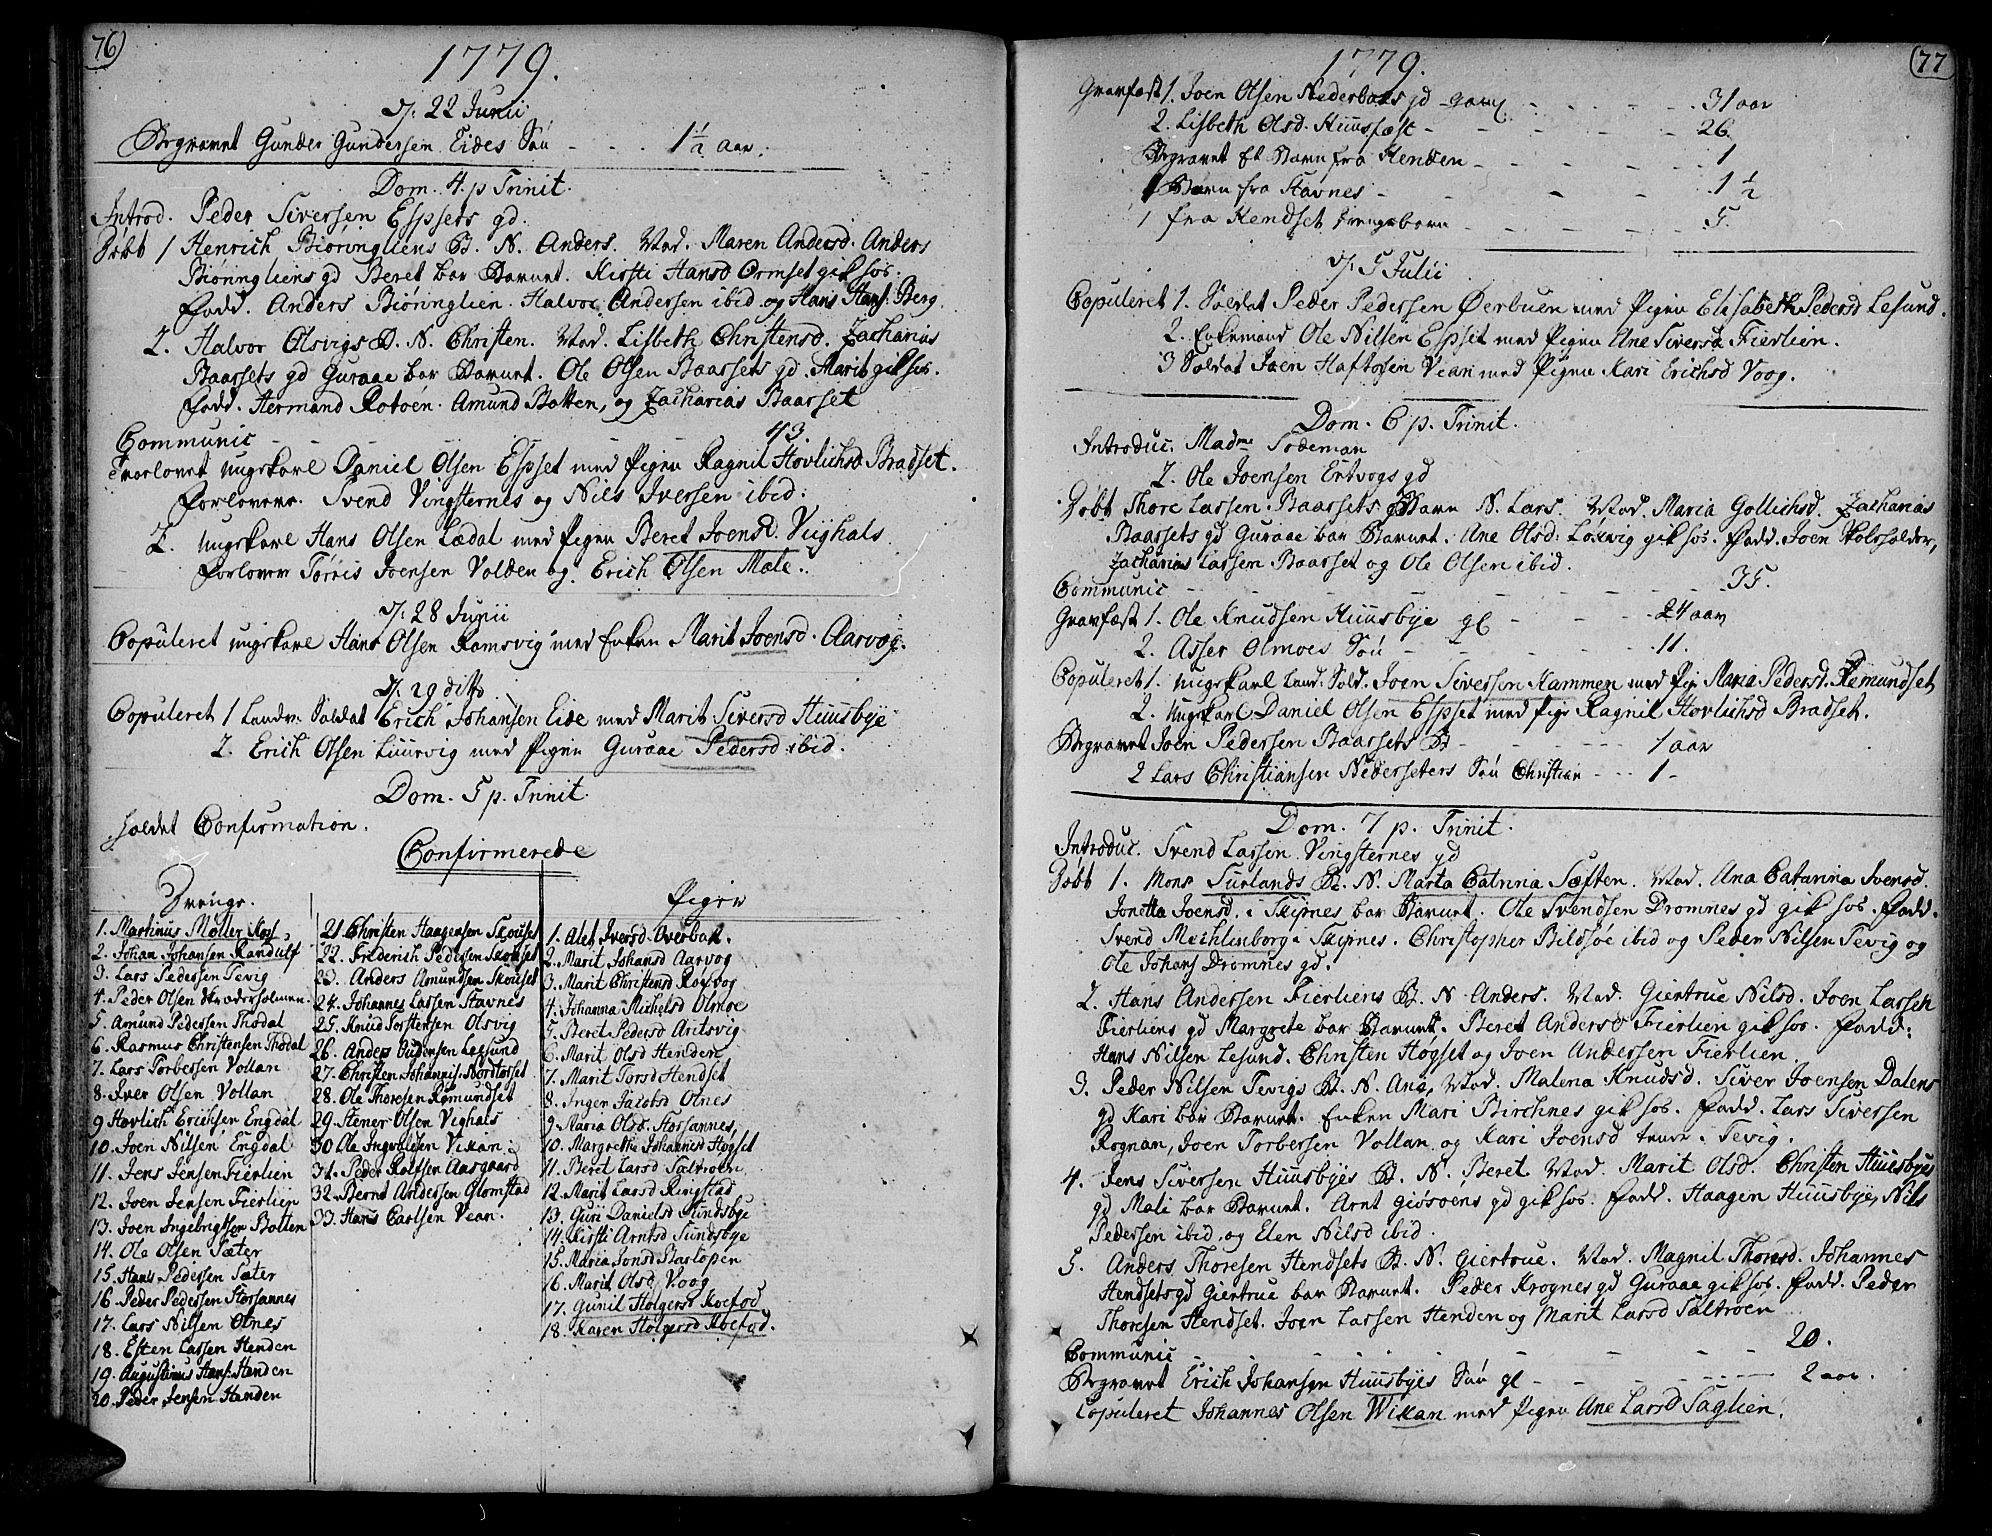 76)
1779.
D: 22 Junii
Begravet Gunder Gundersen Eides Søn - - - 1 1/2 aar.
Dom. 4. p Trinit.
Introd. Peder Siversen Espsets gd.
Døbt 1 Henrich Biøringliens B. N. Anders. Vad. Maren Andersd. Anders
Biøringliens gd Beret bar Barnet. Kirsti Hansd Ormset gik hos.
Fadd. Anders Biøringlien. Halvor Andersen ibid og Hans Hans: Berg.
2. Halvor Olsvigs B. N. Christen. Vad. Lisbeth Christensd. Zacharias
Baarsets gd Guraae bar Barnet. Ole Olsen Baarsets gd. Marit gik hos.
Fadd. Hermand Rotøen. Amund Botten, og Zacharias Baarset
Communic - - 43.
Trorlovet ungkarl Daniel Olsen Espset med Pigen Ragnil Hovlichsd Bradset.
Forlovere. Svend Vingsternes og Nils Iversen ibid.
2. ungkarl Hans Olsen Lædal med Pigen Beret Joensd. Viighals
Forlover Tørris Joensen Volden og Erich Olsen Mæle.
D: 28 Junii
Copuleret ungkarl Hans Olsen Ramsvig med Enken Marit Joensd. Aarvog.
D: 29 ditto
Copuleret 1 Landv: Soldat Erich Johansen Eide med Marit Siversd Huusbye
2. Erich Olsen Luurvig med Pigen Guraae Pedersd ibid.
Dom. 5 p. Trinit.
holdet Confirmation.
Confirmerede
Drenge.
1. Martinus Møller
2. Johan Johansen Randulf
3. Lars Pedersen Tevig
4. Peder Olsen
5. Amund Pedersen Thodal
6. Rasmus Christensen Thodal
7. Lars Torbersen Vollan
8. Iver Olsen Vollan
9 Hovlich Erichsen Engdal
10. Joen Nilsen Engdal
11. Jens Jensen Fierlien
12. Joen Jensen Fierlien
13. Joen Ingebrigtsen Botten
14. Ole Olsen Sæter
15. Hans Pedersen Sæter
16. Peder Pedersen Storsannes
17. Lars Nilsen Olnes
18. Esten Larsen Henden
19. Augustinus Hans: Henden
20. Peder Jensen Henden
21. Christen Haagensen Skouset
22. Friderich Pedersen Skouset
23. Anders Amundsen Skouset
24. Johannes Larsen Stavnes
25. Knud Torstensen Olsvig
26. Anders Oudensen Leesund
27. Christen Johannis: Nordtorset
28. Ole Thoresen Remundset
29. Stener Olsen Vighals
30 Ole Ingvilsen Vikan
31. Peder Rolfsen Aasgaard
32. Bernt Andersen Glomstad
33. Hans Carlsen Vean.
Piger
1. Alet Iversd. Averbak.
2. Marit Johansd Aarvog
3. Marit Christensd
4. Johanna Michelsd Olmoe
5. Beret Pedersd Aritsvig
6. Marit Olsd Henden
7. Marit Torsd Hendset
8. Inger Jacobsd Olnes
9. Maria Olsd. Storsannes,
10. Margrethe Johannesd Høgset
11. Beret Larsd Saltrøen
12. Marit Larsd Ringstad
13. Guri Danielsd Sundsbye
14. Kirsti Arntsd Sundsbye
15. Maria Jonsd
16. Marit Olsd. Voog
17. Gunil Holgersd Koefod
18. Karen Holgersd Koefod.
77
1779.
Gravfæst 1. Joen Olsen Nederbaas gd - gaml - - - 31 aar
2. Lisbeth Olsd. Huusfæst - - - 26.
Begravet Et Barn fra Henden - - - 1
1 Barn fra Stavnes - - - 1 1/2
1 fra Hendset drengebarn - - - 5.
D: 5 Julii
Copuleret 1. Soldat Peder Pedersen Øerbuen med Pigen Elisabeth Pedersd Lesund.
2. Enkemand Ole Nilsen Espset med Pigen Ane Siversd Fierlien.
3 Soldat Joen Haftorsen Vean med Pigen Kari Erichsd Voog.
Dom. 6 p. Trinit.
Introduc. Madme Todeman
2. Ole Joensen Ertvogs gd
Døbt Thore Larsen Baarsets Barn N. Lars. Vad. Maria Gollichsd. Zacharias
Baarsets gd Guraae bar Barnet. Ane Olsd: Løkvig gik hos. Fadd. Joen Skoleholder,
Zacharias Larsen Baarset og Ole Olsen ibid.
Communic - - - 35.
Gravfæst 1. Ole Knudsen Huusbye gl - - - 24 aar
2. Asser Olmoes Søn - - - 11.
Copuleret 1. ungkarl Land. Sold. Joen Siversen Hammen med Pig. Maria Pedersd. Remundset
2. ungkarl Daniel Olsen Espset med Pige Ragnil Hovlichsd Bradset.
Begravet Joen Pedersen Baarsets B - - - 1 aar
2 Lars Christiansen Nedersæters Søn Christian - - - 1 -
Dom. 7 p. Trinit.
Introduc. Svend Larsen Vingsternes gd
Døbt 1. Mons Surlands B. N. Marta Catrina Sæften. Vad. Ana Catarina Ivensd.
Jonetta Joensd. i Skipnes bar Barnet. Ole Svendsen Dromnes gd gik hos. Fadd.
Svend Mechlinborg i Skipnes. Christopher Bildsøe ibid og Peder Nilsen Tevig og
Ole Johans Dromnes gd.
2. Hans Andersen Fierliens B. N Anders. Vad. Giertrue Nilsd. Joen Larsen
Fierliens gd Margrete bar Barnet. Beret Andersd Fierlien gik hos. Fadd:
Hans Nilsen Lesund. Christen Høgset og Joen Andersen Fierlien.
3. Peder Nilsen Tevigs B. N. Ana, Vad. Malena Knudsd. Siver Joensen Dalens
gd Kari bar Barnet. Enken Mari Birchnes gik hos. Fadd. Lars Siversen
Rognan, Joen Torbersen Vollan og Kari Joensd i Tevig.
4. Jens Siversen Huusbyes B. N. Beret. Vad. Marit Olsd. Christen Huusbyes
gd Mali bar Barnet. Arnt Giøsøens gd gik hos. Fadd. Haagen Huusbye, Nils
Pedersen ibid, og Elen Nilsd ibid.
5. Anders Thoresen Hendsets B. N. Giertrue. Vad. Magnil Thoresd. Johannes
Hendsets gd Giertrue bar Barnet. Peder Krognes gd Guraae gik hos. Fadd. Peder
Thoresen Hendset. Joen Larsen Henden og Marit Larsd Saltrøen
Communic - - - 20.
Begravet Erich Johansen Huusbyes Søn gl - - - 2 aar.
Copuleret Johannes Olsen Wikan med Pigen Ane Larsd Saglien.